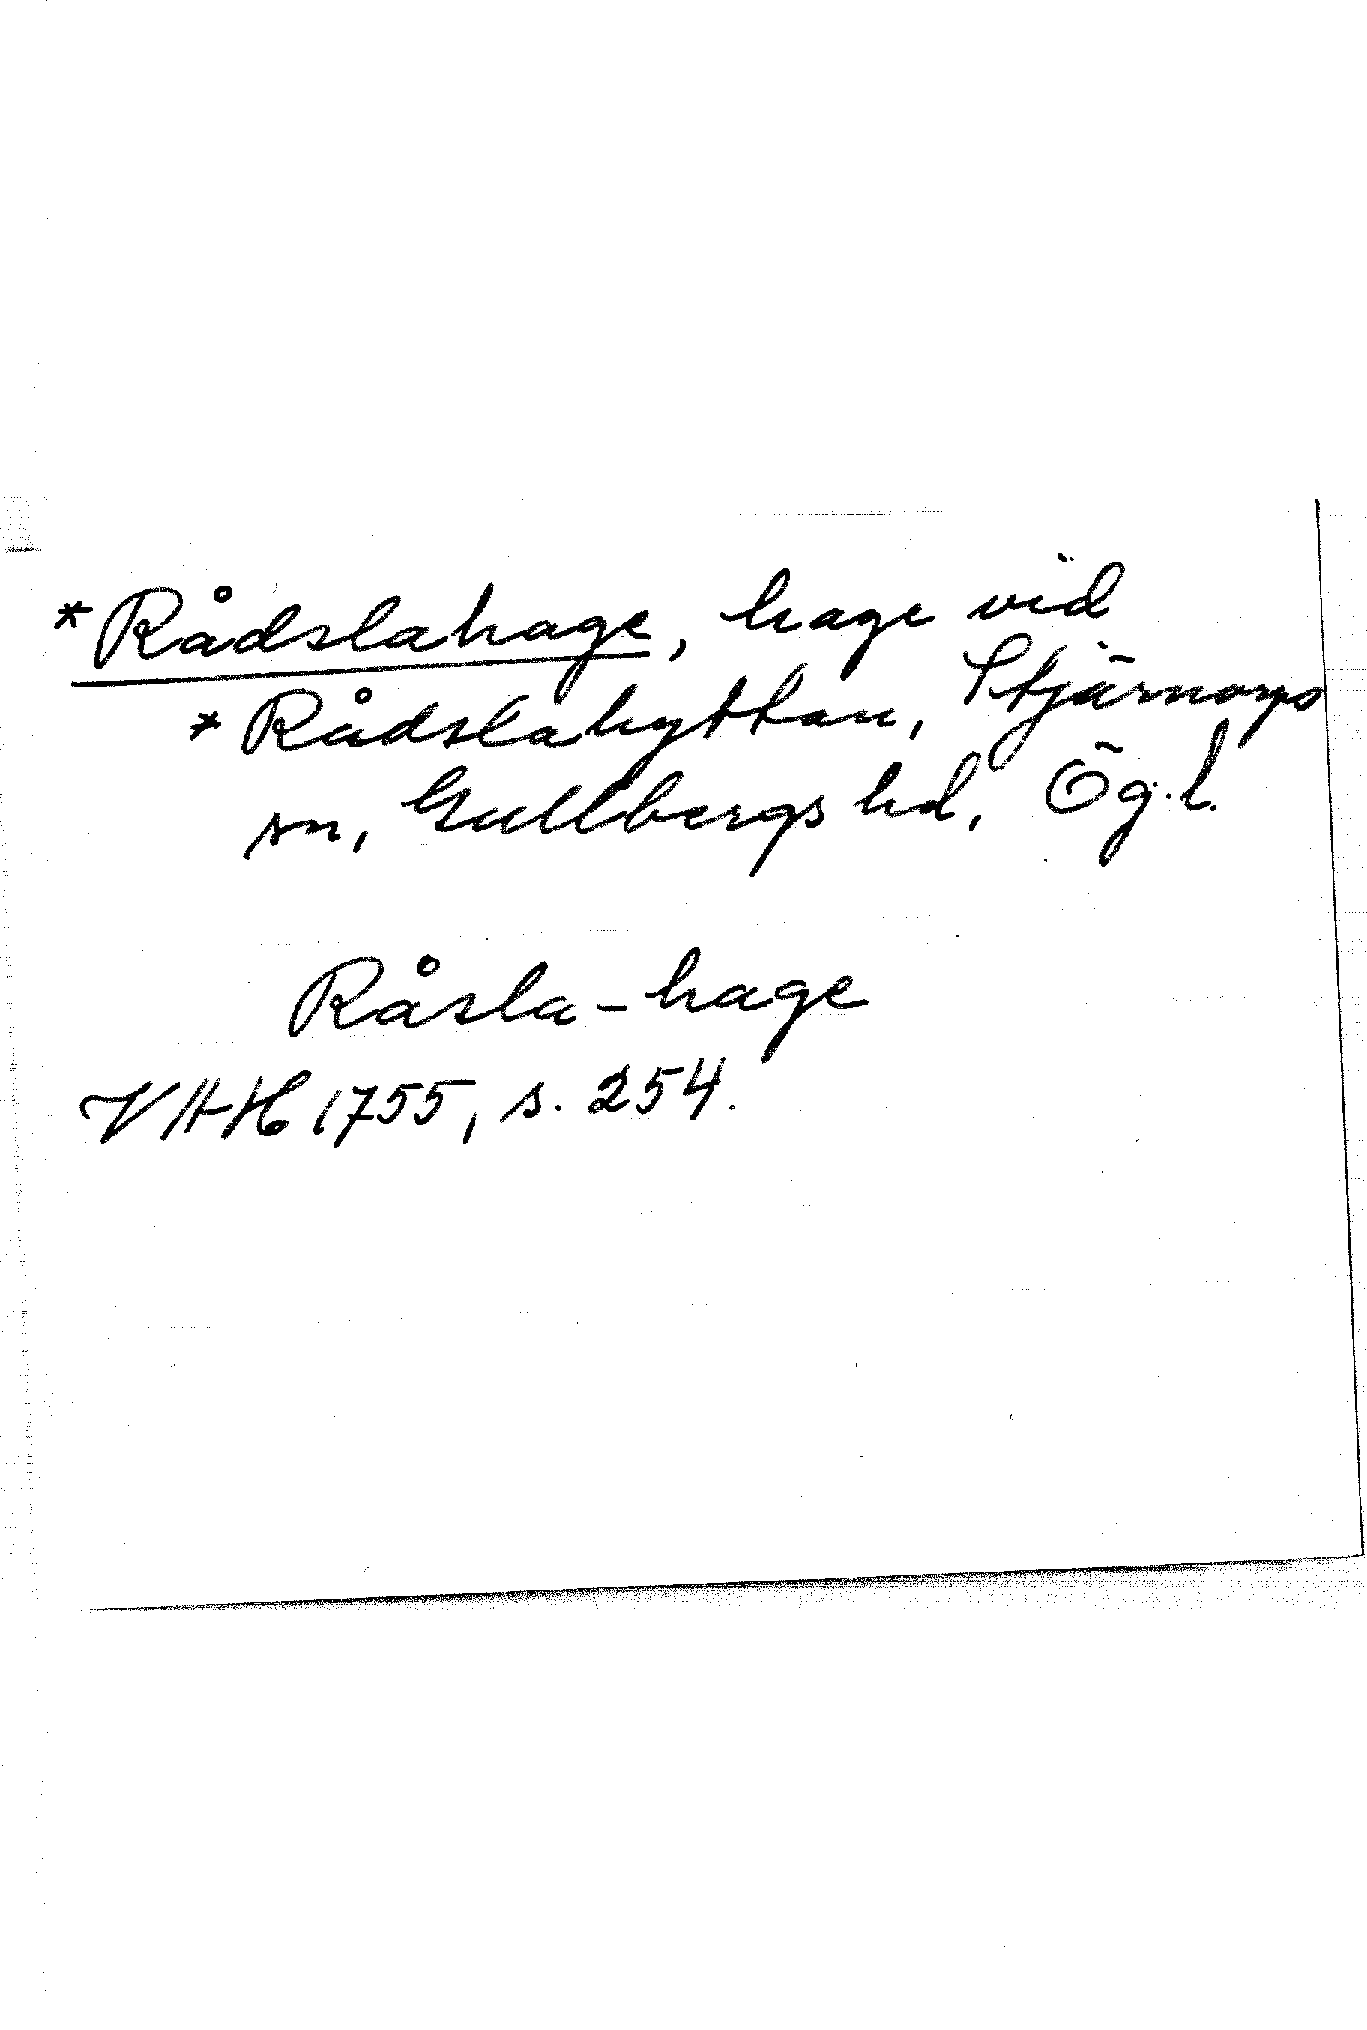 *Rådslahage, hage vid
*Rådslahyttan, Stjärnorps
sn, Gullbergs hd, Ög.l.
Råsla-hage
VAH 1755, s. 254.